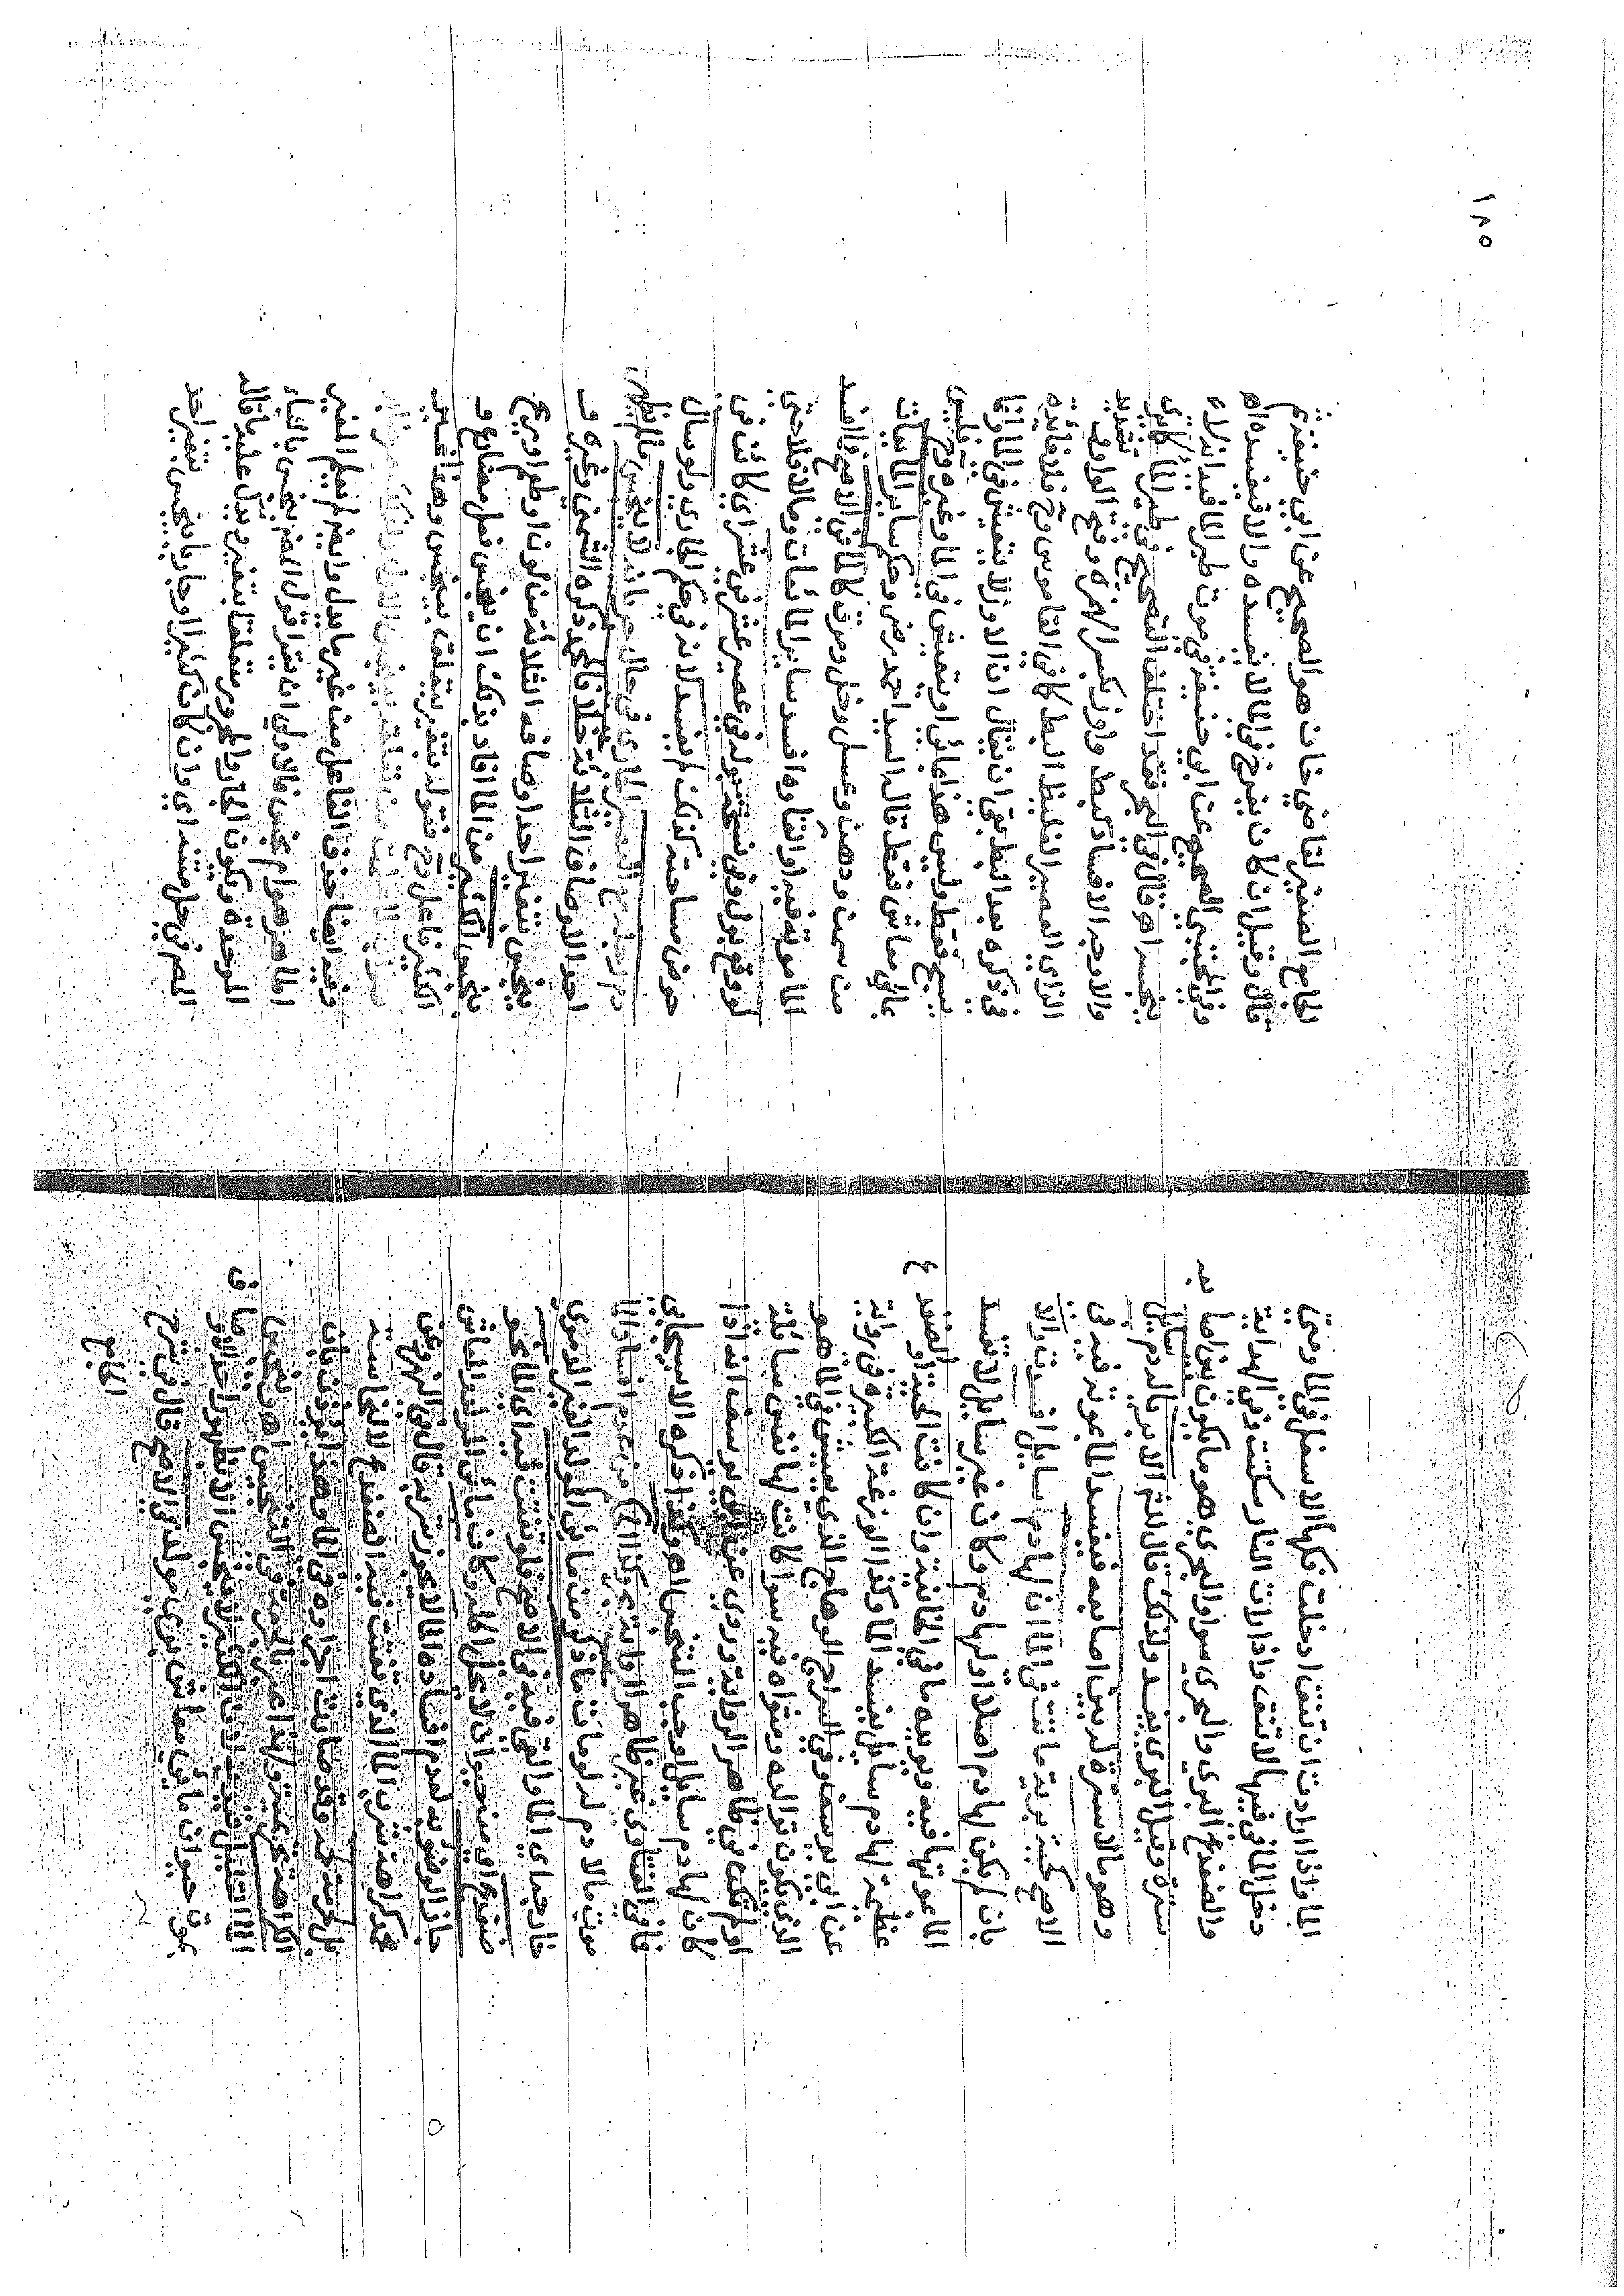 الماء واذا ارادت ان تنق ادخلت فكها الاسفل في الماء ومتى
دخل الماء في فيها لا تنق واذا رات النار سكتت وفي الهداية
والضفدع البري والبحري سواء والبحري هو ما يكون بين اصابعه
سترة وقيل البري يفسد ولذلك قال الا بريا له دم سايل
وهو ما لا سترة له بين اصابعه فيفسد الماء بموته فيه في
الاصح كحية برية ماتت في الماء ان لها دم سايل افسدته والا
بان لم يكن لها دم اصلا او لها دم وكان غير سايل لا تفسد
الماء بموتها فيه ونحوه ما في الخانية وان كانت الحية او الضفدع
عظيمة لها دم سايل يفسد الماء وكذا الوزغة الكبيرة في رواية
عن ابي يوسف وفي السراج الوهاج الذي يعيش في الماء هو
الذي يكون توالده ومثواه فيه سواء كانت لها نفس سائلة
او لم تكن في ظاهر الرواية وروي عن ابي يوسف انه اذا
كان لها دم سايل اوجب التنجس اه وكذا ذكره الاسبيجابي
فما في الفتاوى غير ظاهر الرواية بحر وكذا الحكم من عدم افساد الماء
موت ما لا دم له لو مات ما ذكر من مائي المولد الغير الدموي
خارجه اي الماء والقي فيه في الاصح فلو تفتت فيه اي الماء نحو
ضفدع اي من حيوان لا يحل اكله وكان مائي المولد والمعاش
جاز الوضوء به لعدم افساده الماء لا يجوز شربه قال في النهر وعن
محمد كراهة شرب الماء الذي تفتت فيه الضفدع لا لنجاسته
بل لحرمة لحمه وقد صارت اجزاؤه في الماء وهذا يؤذن بان
الكراهة تحريمية ولهذا عبر بالحرمة في التجنيس اه وينجس
الماء القليل قيد به لان الكثير لا ينجس الا بظهور احد الاوصاف
بموت حيوان مائي معاش بري مولد في الاصح قال في شرح
الجامع
١٨٥
الجامع الصغير لقاضي خان هو الصحيح عن ابي حنيفة ثم
قال وقيل ان كان يفرخ في الماء لا يفسده والا فيفسده اه
وفي المجتبى الصحيح عن ابي حنيفة في موت طير الماء فيه انه لا
ينجسه اه وقال في البحر فقد اختلف التصحيح في طير الماء كما ترى
والاوجه الافساد كبط واوز بكسر الهمزة وفتح الواو وتشديد
الزاي القصير الغليظ البط كما في القاموس وح فلا فائدة
في ذكره بعد البط بقي ان يقال ان الاوز لا يتعيش في الماء وانما
يسبح فقط وليس هذا بمائي او يتعيش في الماء وغيره وح فليس
بمائي معاش فقط قاله السيد احمد رض وحكم ساير المايعات
من سمن ودهن وعسل وخل ومرق كالماء في الاصح فما افسد
الماء موته فيه او القاؤه افسد ساير المائعات وما لا فلا حتى
لو وقع بول وفي نسخة بوله في عصير عشر في عشر اي كائن في
حوض مساحته كذلك لم يفسد لانه في حكم الجاري ولو سال
دم رجله مع العصير الجاري في حال عصره بانه لا ينجس ما لم يظهر
احد الاوصاف الثلاثة خلافا لمحمد ذكره الشمني وغيره و
ينجس بتغير احد اوصافه الثلاثة من لون او طعم او ريح
ينجس الكثير من الماء افاد بذلك ان ينجس فعل مضارع و
الكثير فاعل وح فقوله بتغير يتعلق بينجس وهذا غير
وفيه ايضا حذف الفاعل من غير ما يدل وايضا لم يعلم المغير
اطاهر هو ام نجس فالاولى ان يقرا قول المص بنجس بالباء
الموحدة ويكون الجار والمجرور متعلقا بتغير ويدل عليه ما قاله
المص في حل متنه اي وان كان كثيرا او جاريا ينجس بتغير احد